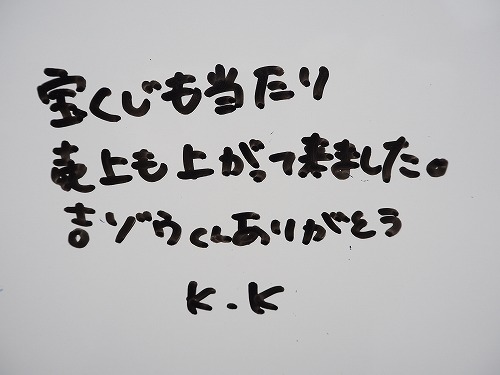 宝くじも当たり
売上も上がって来ました。
吉ゾウくんありがとう
K.K